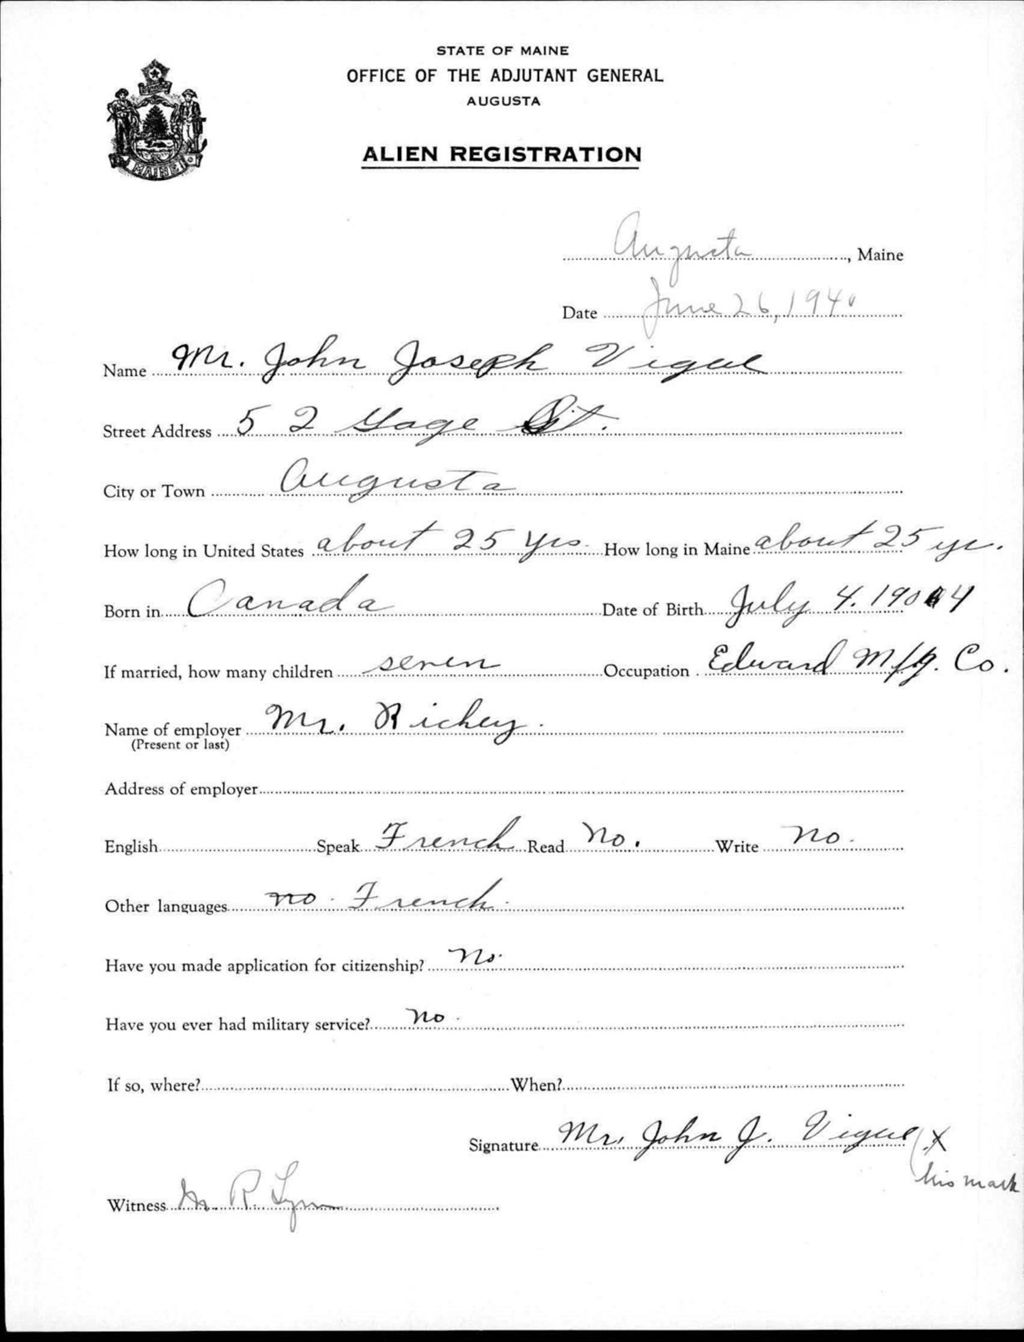 STATE OF MAINE
OFFICE OF THE ADJUTANT GENERAL
AUGUSTA
ALIEN REGISTRATION
MAINE
Augusta, Maine
Date June 26, 1940
Name Mr. John Joseph Vigue
Street Address 52 Gage St.
City or Town Augusta
How long in United States about 25 yrs. How long in Maine about 25 yr.
Born in Canada Date of Birth July 4. 1904
If married, how many children seven Occupation Edward Mfg. Co.
Name of employer Mr. Richey.
(Present or last)
Address of employer
English Speak French Read No. Write No.
Other languages no. French.
Have you made application for citizenship? No.
Have you ever had military service? No.
If so, where? When?
Signature Mr. John J. Vigue X
his mark
Witness M. R. Lynn